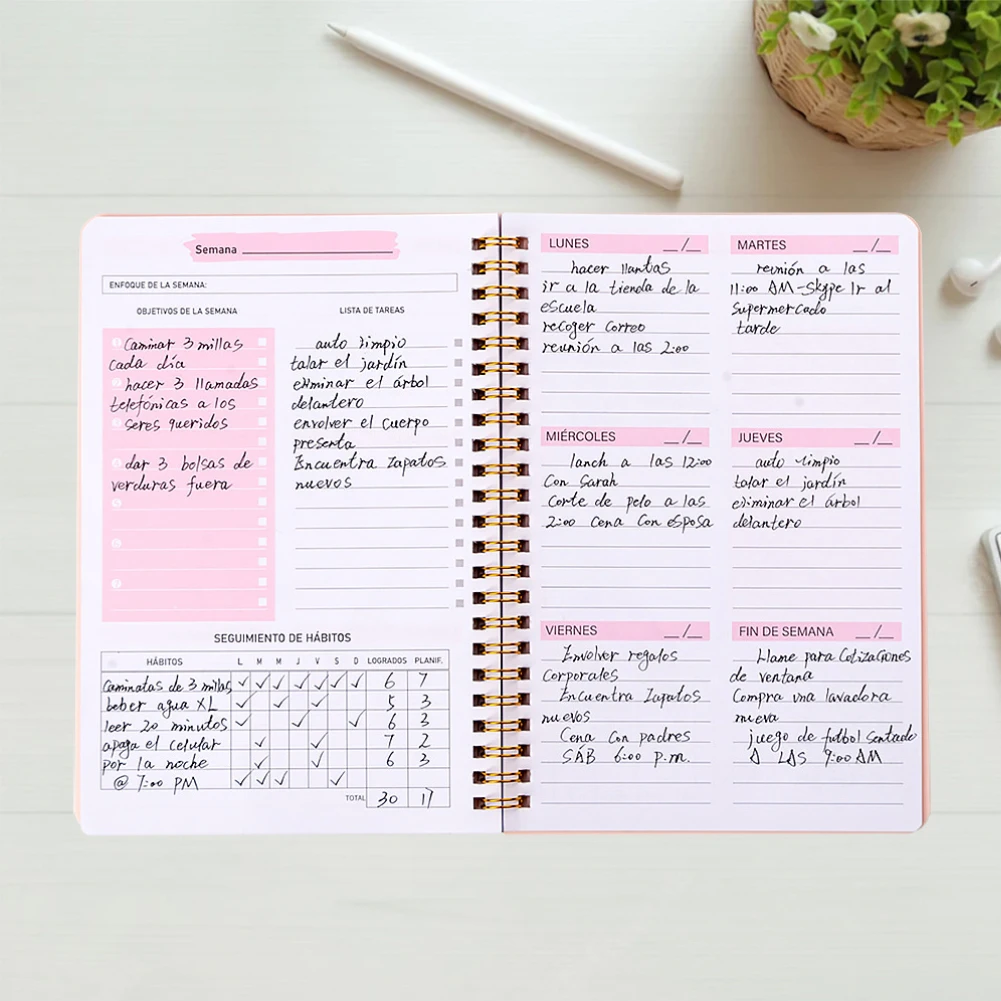 Semana
ENFOQUE DE LA SEMANA:
OBJETIVOS DE LA SEMANA
Caminar 3 millas
cada día
hacer 3 llamadas
telefónicas a los
seres queridos
dar 3 bolsas de
verduras fuera
LISTA DE TAREAS
auto limpio
talar el jardín
eliminar el árbol
delantero
envolver el cuerpo
presenta
Encuentra Zapatos
nuevos
SEGUIMIENTO DE HÁBITOS
HÁBITOS L M M J V S D LOGRADOS PLANIF.
Caminatas de 3 millas ✓ ✓ ✓ ✓ ✓ ✓ ✓ 6 7
beber agua XL ✓ ✓ ✓ 5 3
leer 20 minutos ✓ ✓ ✓ 6 3
apaga el celular ✓ ✓ 7 2
por la noche ✓ ✓ 6 3
@ 7:00 PM ✓ ✓ ✓ ✓
TOTAL 30 17
LUNES __/__
hacer llantas
ir a la tienda de la
escuela
recoger correo
reunión a las 2:00
MARTES __/__
reunión a las
11:00 AM-Skype Ir al
supermercado
tarde
MIÉRCOLES __/__
lanch a las 12:00
Con Sarah
Corte de pelo a las
2:00 Cena Con esposa
JUEVES __/__
auto limpio
talar el jardín
eliminar el árbol
delantero
VIERNES __/__
Envolver regalos
Corporales
Encuentra Zapatos
nuevos
Cena Con padres
SÁB 6:00 P.m.
FIN DE SEMANA __/__
Llame para Cotizaciones
de ventana
Compra una lavadora
nueva
juego de futbol Sentado
A LAS 9:00 AM